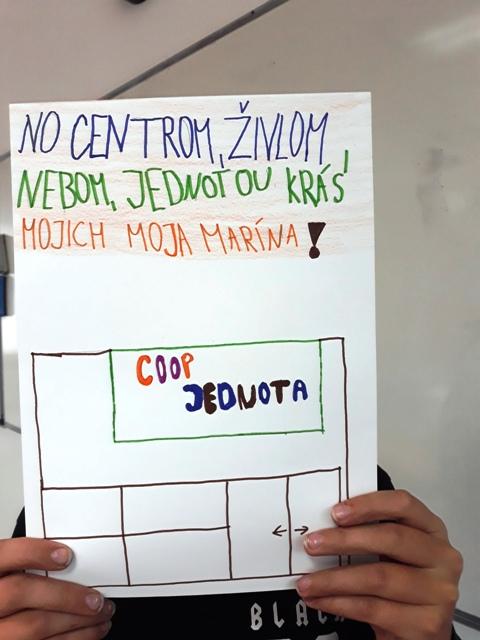 NO CENTROM, ŽIVLOM
NEBOM, JEDNOTOU KRÁS
MOJICH MOJA MARÍNA!
COOP
JEDNOTA
← →